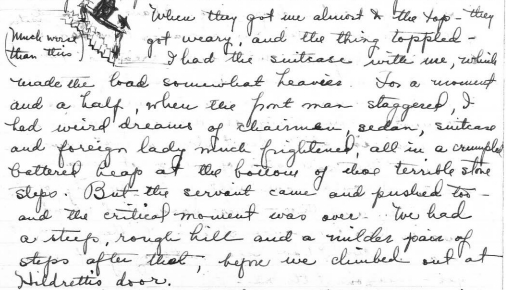 When they got me almost to the top - they
(Much worse
than this)
got weary, and the thing toppled -
I had the suitcase with me, which
made the load somewhat heavier. For a moment
and a half, when the front man staggered, I
had weird dreams of chairmen, sedan, suitcase
and foreign lady much frightened, all in a crumpled
battered heap at the bottom of those terrible stone
steps. But the servant came and pushed too -
and the critical moment was over. We had
a steep, rough hill and a milder pair of
steps after that, before we climbed out at
Hildrettis door.